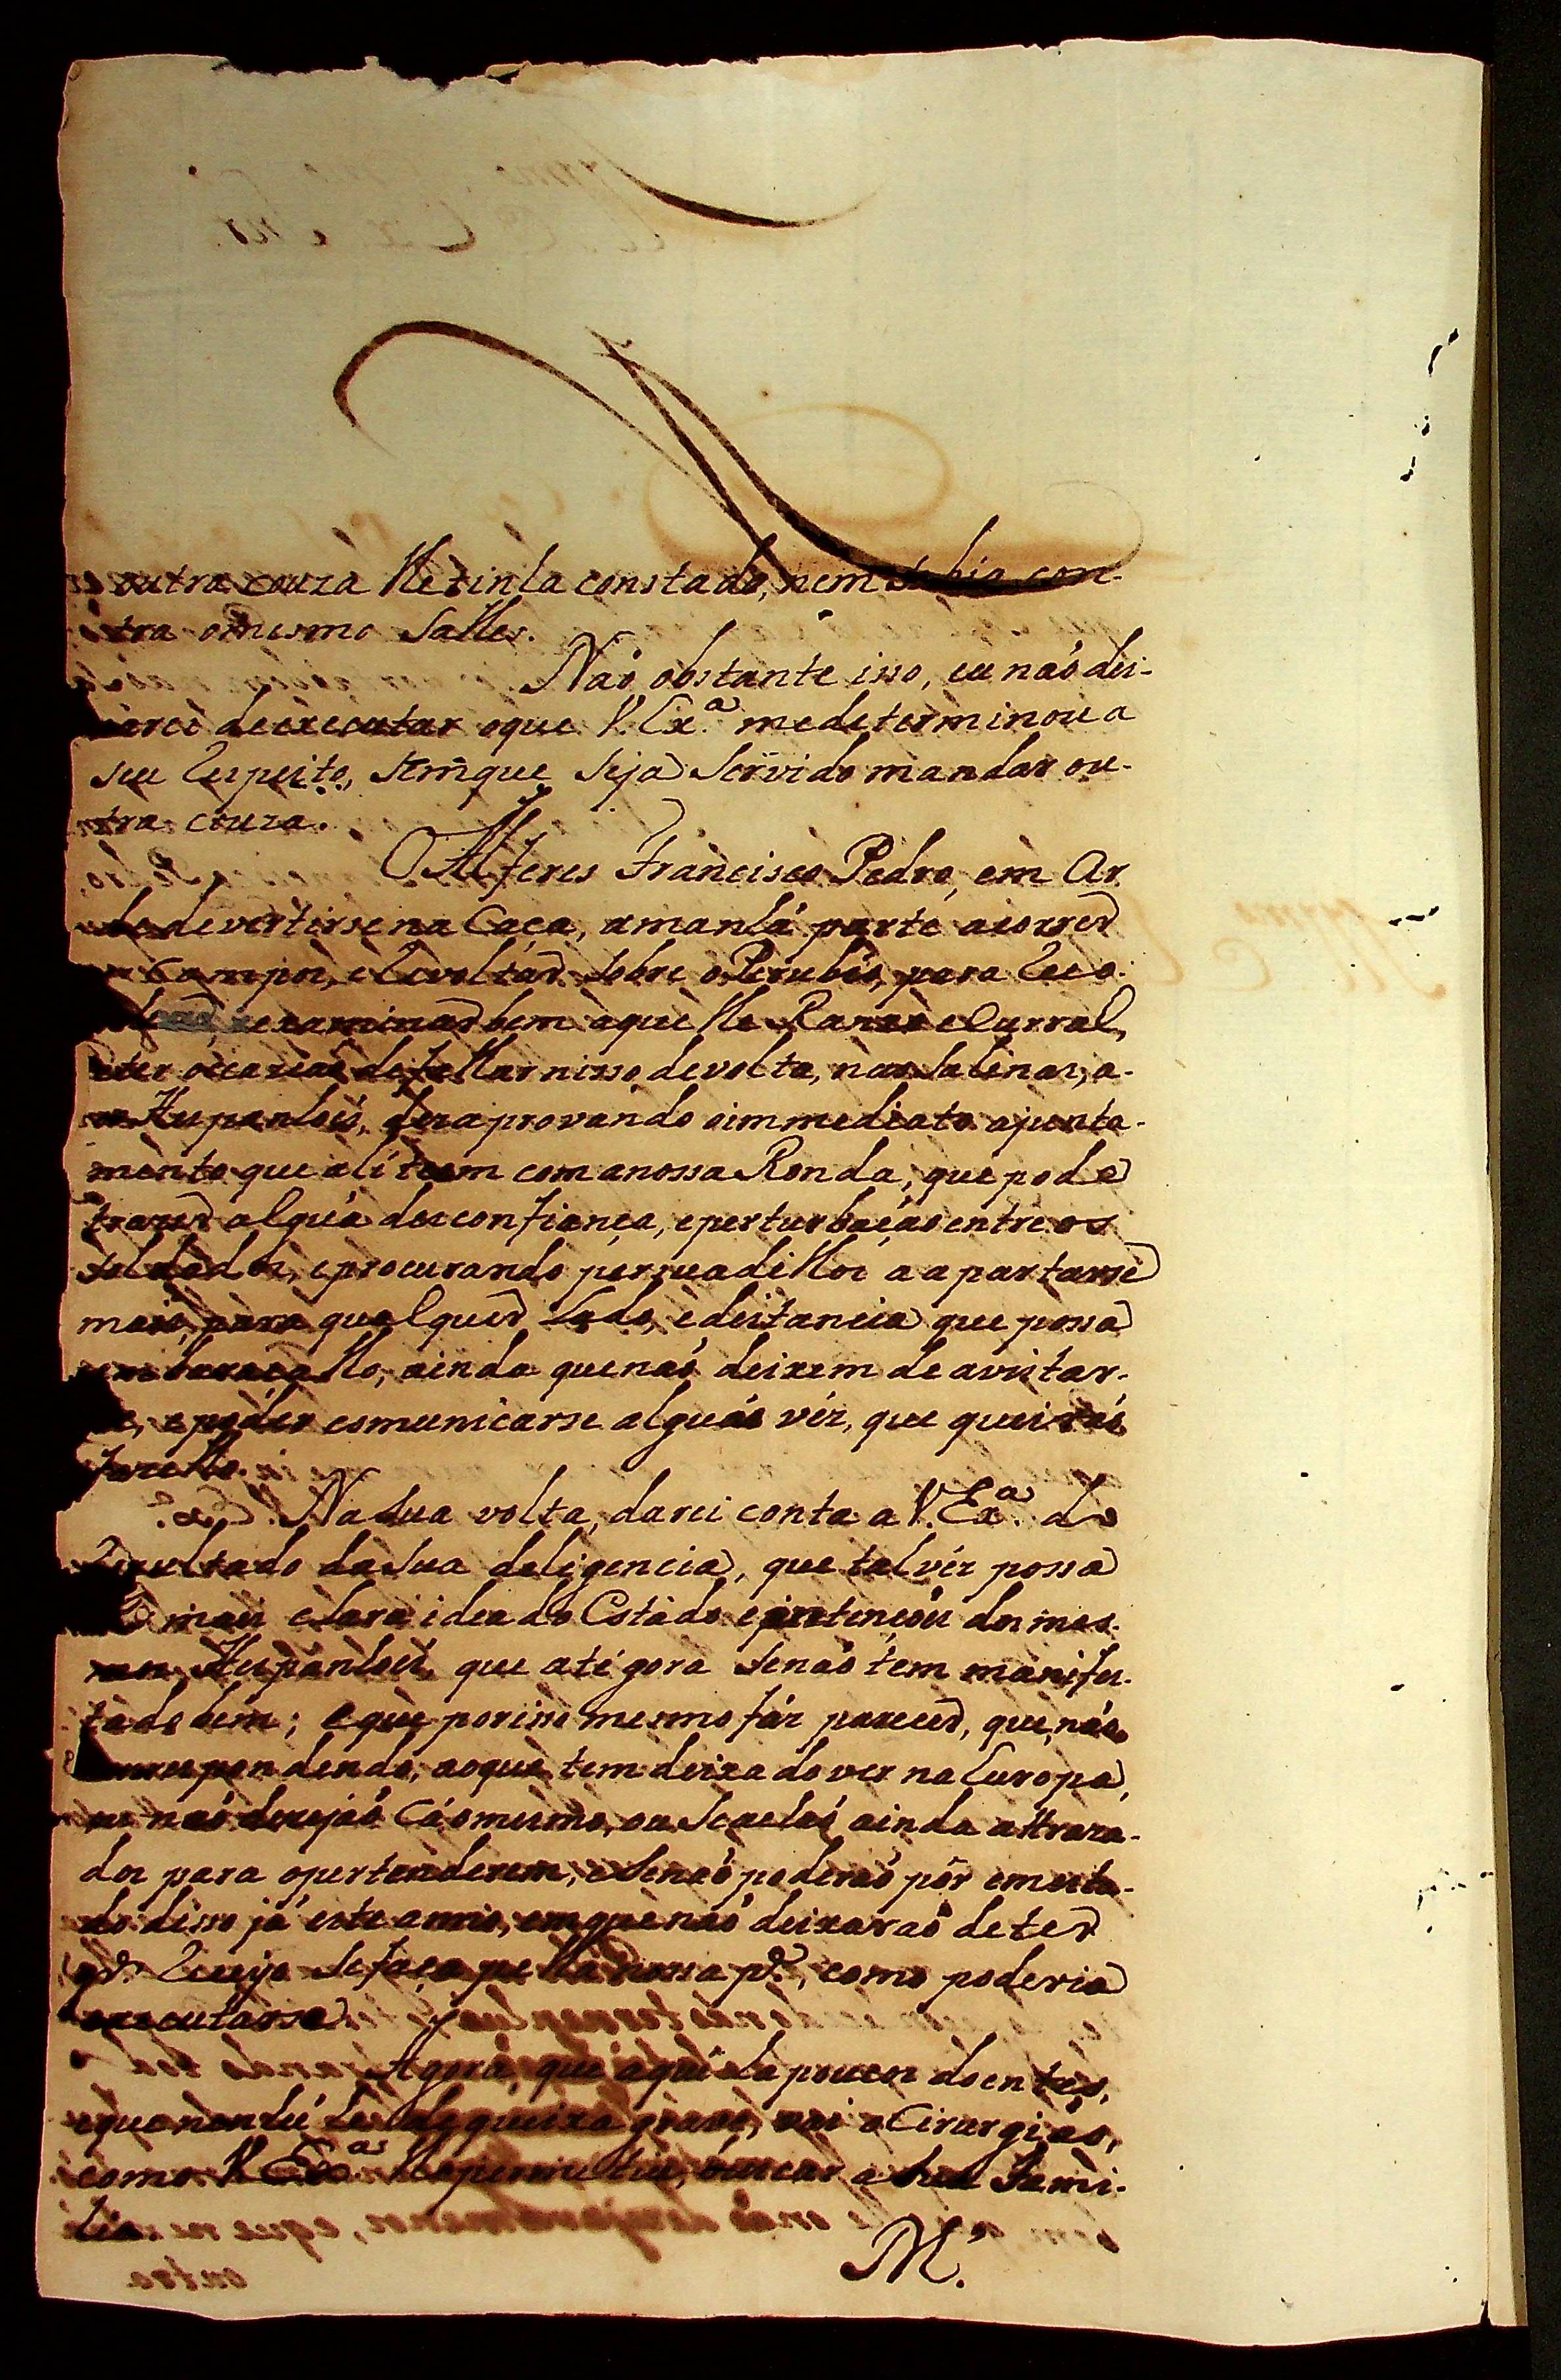 outra couza lhe tinha constado, nem sabia con-
tra o mesmo Salles.
Naõ obstante isso, eu naõ dei-
xarei de executar o que V. Ex.ª me determinou a
seu respeito, sem que seja servido mandar ou-
tra couza.
O Alferes Francisco Pedro, em Ar
de devertirse na Caça, amanhã parte a correr
Campos, e revoltar sobre o para reco-
examinar bem aquelle Rancho e Curral,
e ter occaziaõ de fallar nisso de volta, nas Salinas, a-
os Hespanhóis, dezaprovando o immediato ajunta-
mento que ali teem com a nossa Ronda, que pode
trazer algũa desconfiança, e perturbaçaõ entre os
soldados, e procurando persuadillos a apartarse
mais, para qualquer lado, e distancia que possa
embaraçallo, ainda que naõ deixem de avistar-
se, e poder comunicarse algũas véz, que queiraõ
fazello.
Na sua volta, darei conta a V. Ex.ª do
rezultado da sua deligencia, que talvéz possa
mais clara idea do Estado e pertençoẽs dos mes-
mos Hespanhóis, que atégora se naõ tem manifes-
tado bem; e que por isso mesmo fáz parecer, que, naõ
correspondendo, ao que tem deixado ver na Europa,
ou naõ dezejaõ cá o mesmo, ou se achaõ ainda attraza-
dos para o pertenderem, e se naõ poderaõ pôr em esta-
do disso já este anno, em que naõ deixaraõ de ter
q.do receyo se faça pella nossa p.te, como poderia
executarse.
Agora, que aqui ha poucos doentes,
e que nenhũ he de queixa grave, vai o Cirurgiaõ,
como V. Ex.ª lhe permittiu, buscar a sua Fami-
lia.
M.